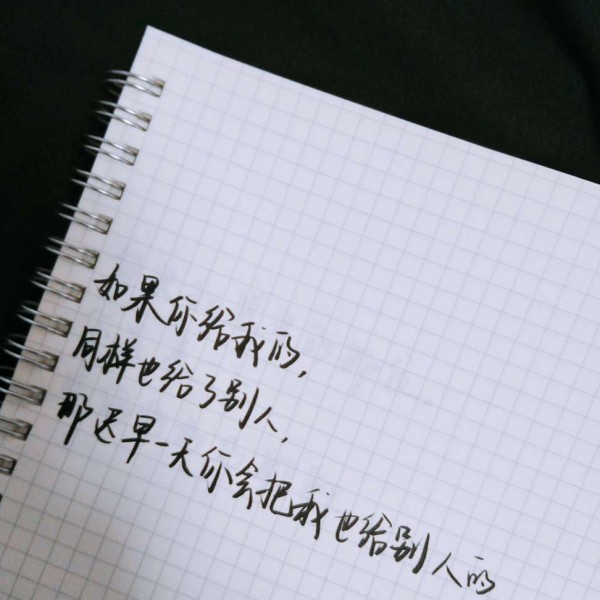 如果你给我的，
同样也给了别人，
那迟早一天你会把我也给别人的